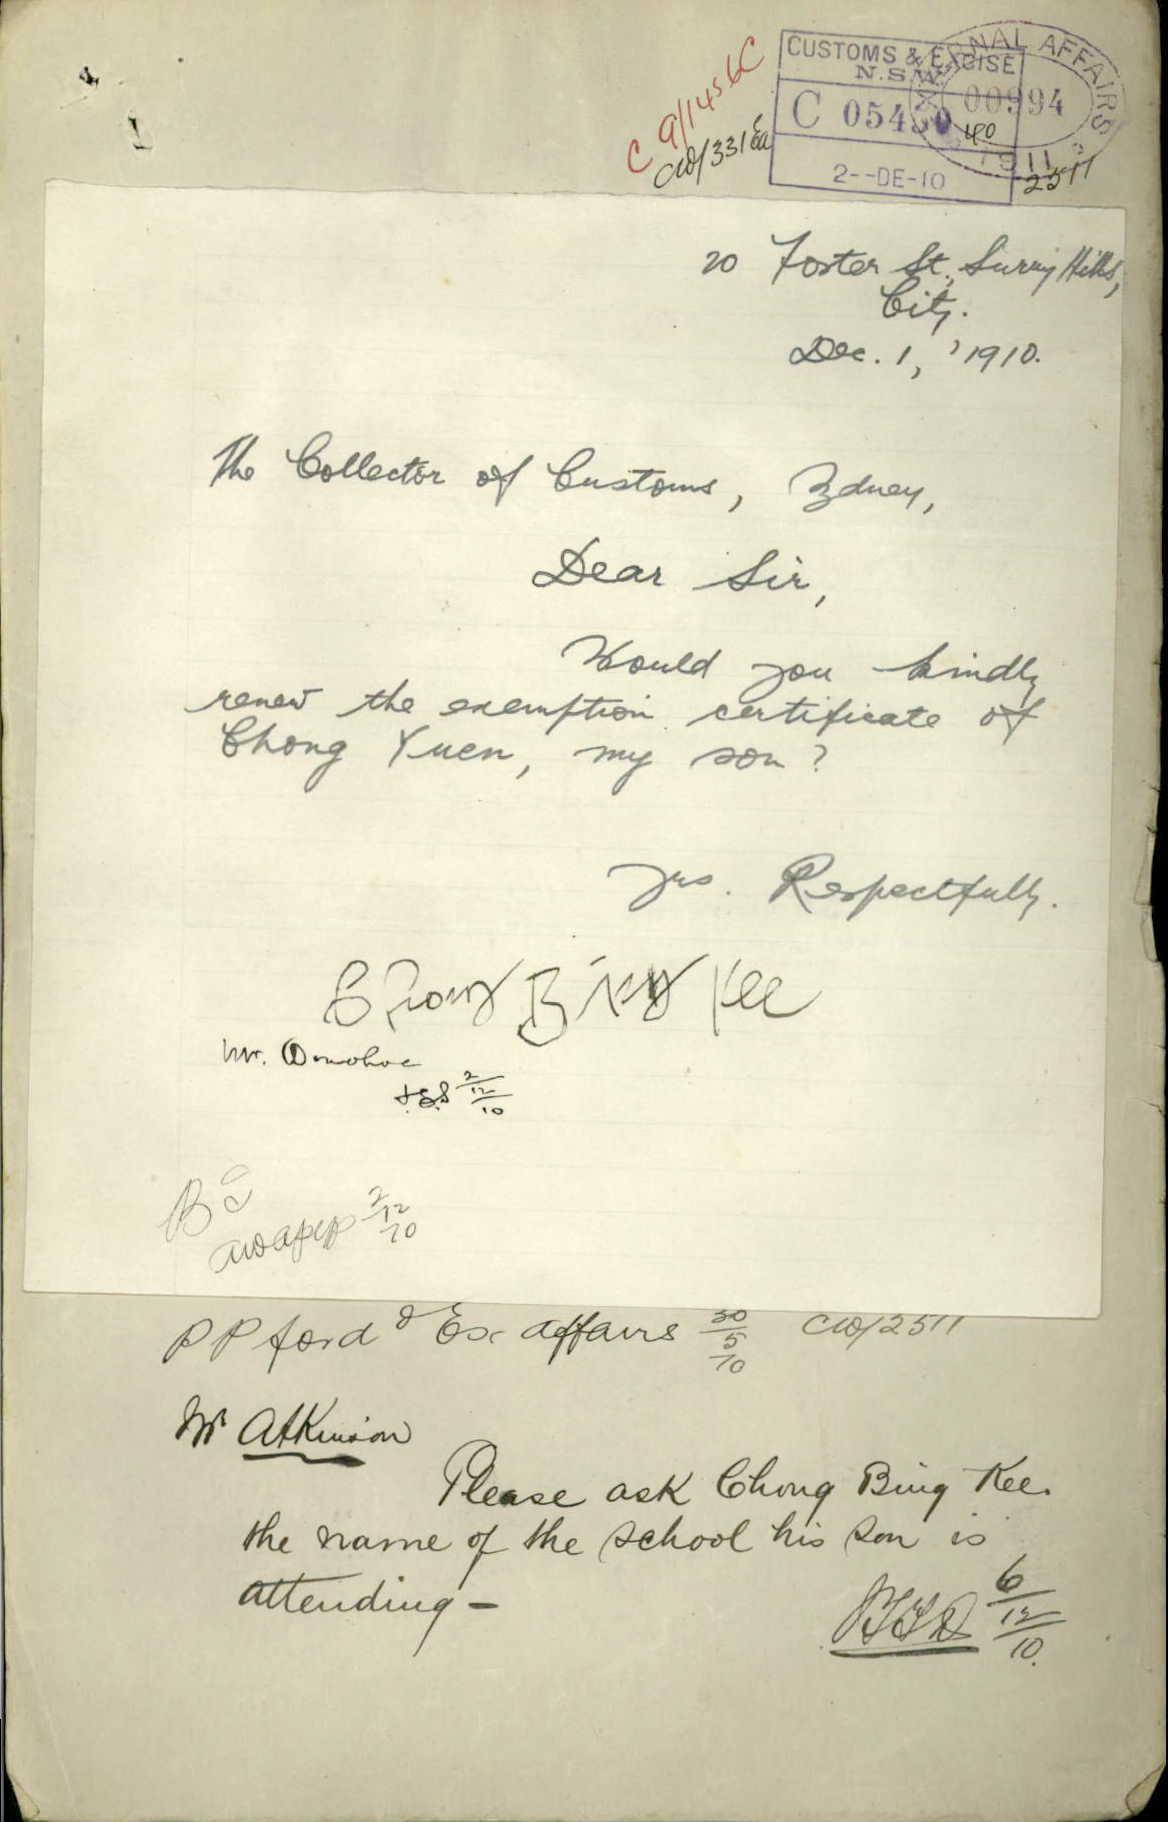 C 9/1456C
CUSTOMS & EXCISE
N.S.W.
C 05430
2--DE-10
EXTERNAL AFFAIRS
00994
1911
2511
20 Foster St., Surry Hills,
City.
Dec. 1, '1910.
The Collector of Customs, Sydney,
Dear Sir,
Would you kindly
renew the exemption certificate of
Chong Yuen, my son?
Yrs. Respectfully.
Chong Bing Kee
Mr. Donohoe
2/12/10
2/12/10
PP ford Ex affairs 30/5/10 2511
Mr Atkinson
Please ask Chong Bing Kee.
the name of the school his son is
attending –
6/12/10.